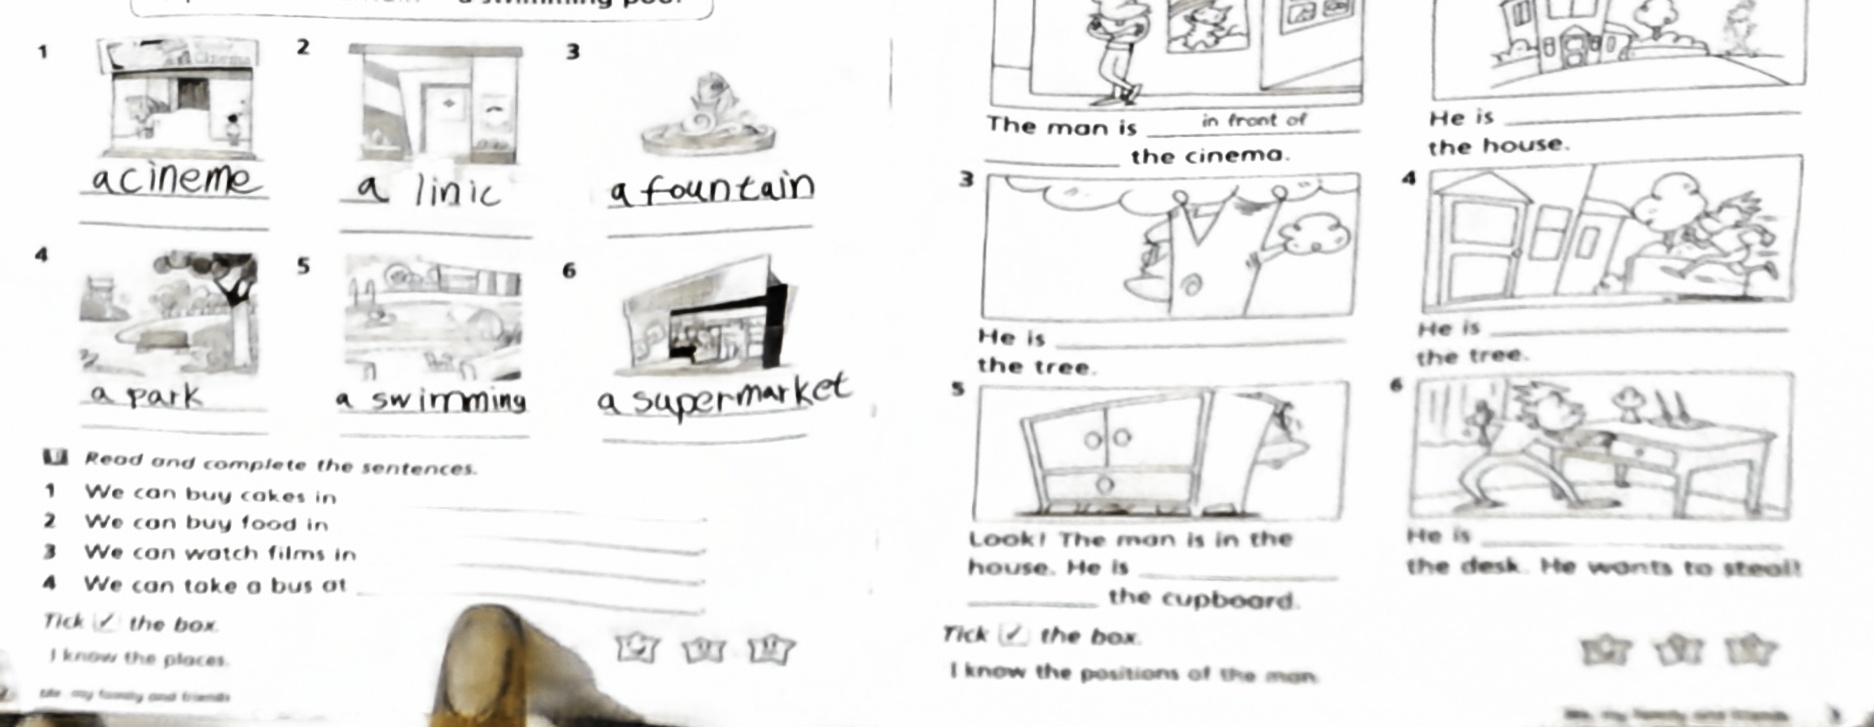 a swimming pool
1 2 3
Cinema
acineme a linic a fountain
4 5 6
a park a swimming a supermarket
Read and complete the sentences.
1 We can buy cakes in
2 We can buy food in
3 We can watch films in
4 We can take a bus at
Tick ✓ the box.
I know the places.
Me, my family and friends
The man is in front of
the cinema.
He is
the house.
3 4
He is
the tree.
He is
the tree.
5 6
Look! The man is in the
house. He is
the cupboard.
He is
the desk. He wants to steal!
Tick ✓ the box.
I know the positions of the man.
Me, my family and friends